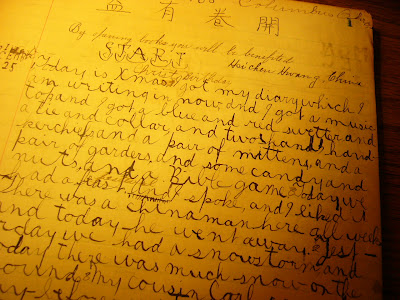 Columbus
益有卷開
By opening books you will be benefited
Hsi Chen Hwang, China
START
25 Today is Xmas I got my diary which I
am writing in now and I got a music
top and I got a blue and red sweter and
a tie and collar, and two hand hand-
kerchies and a pair of mittens, and a
pair of garders, and some candy and
nuts, and a Bible game today we
had a spoke and I liked it
There was a Chinaman here all week
and today he went away. Yest-
erday we had a snowstorm and
today there was much snow on the
ground. My cousin